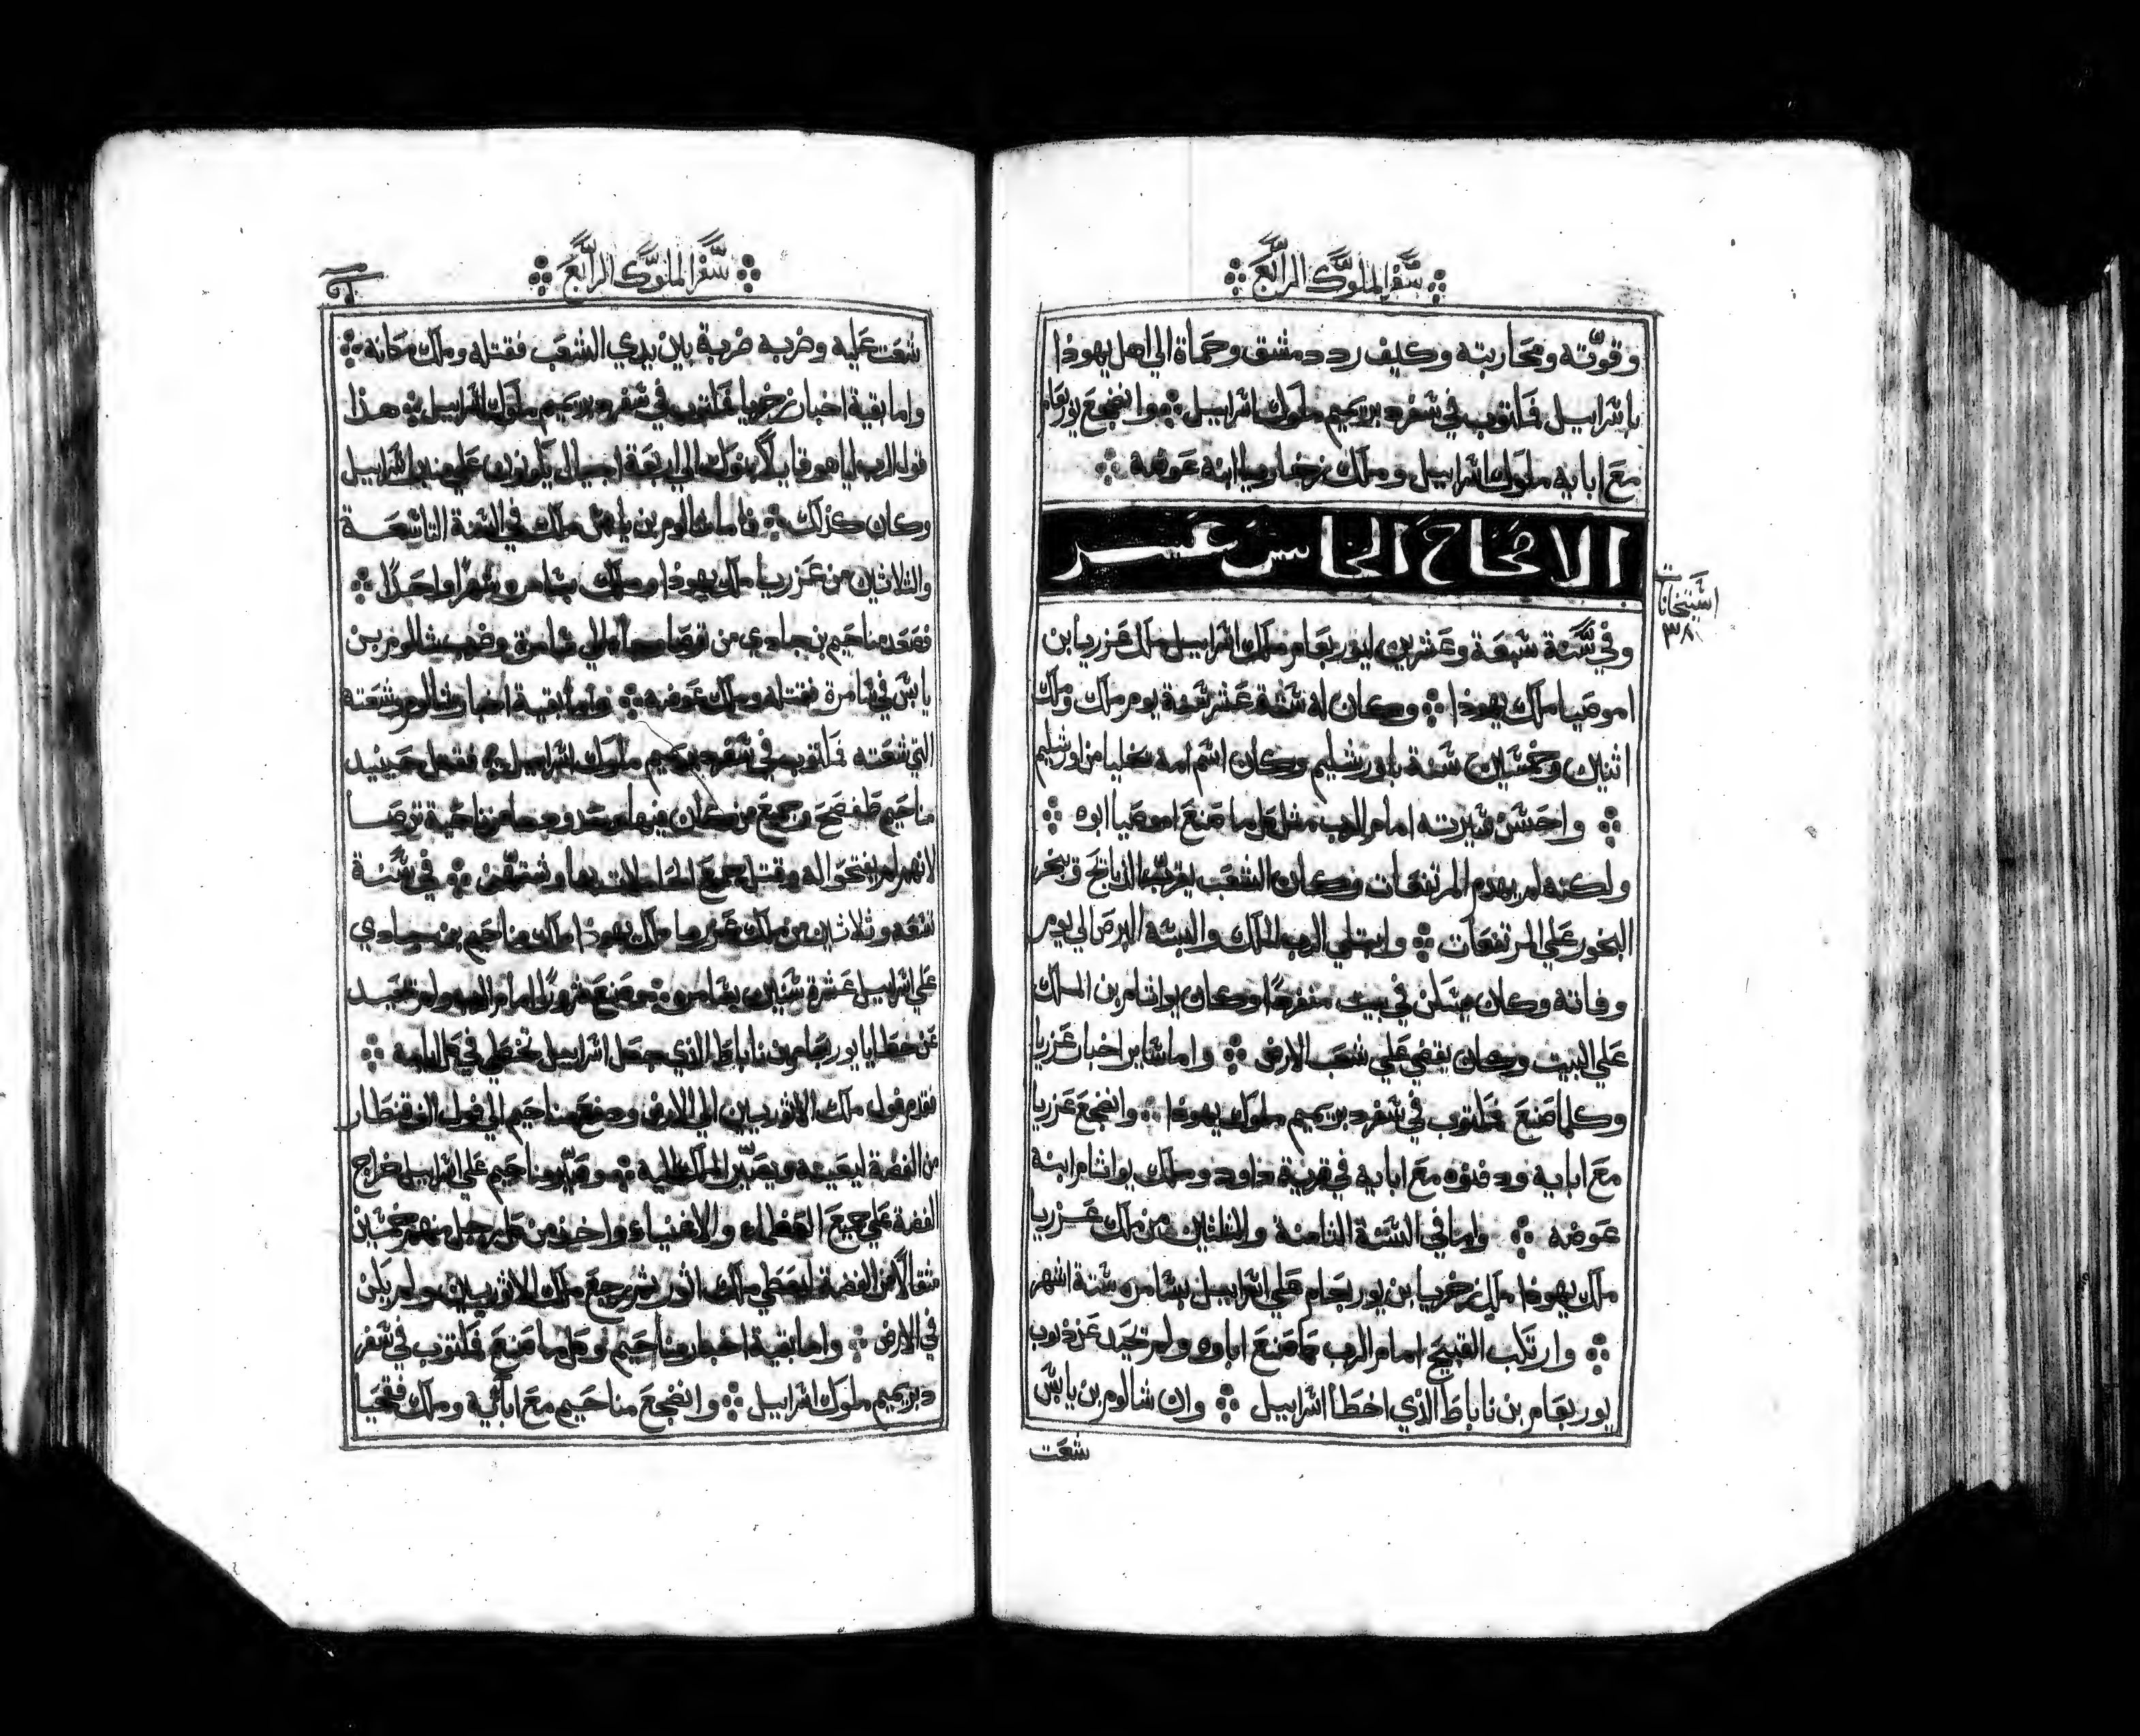 سفر الملوك الرابع
وقوته ومحاربته وكيف رد دمشق وحماة الي اهل يهوذا
باسراييل فمكتوب في سفر دبريميم ملوك اسراييل وانضجع يوربعام
مع ابايه ملوك اسراييل وملك زخاريا ابنه عوضه
الاصحاح الخامس عشر
وفي سنة سبعة وعشرين ليوربعام ملك اسراييل ملك عزريا ابن
اموصيا ملك يهوذا وكان له ستة عشر سنة يوم ملك وملك
اثنين وخمسين سنة باورشليم وكان اسم امه يخليا من اورشليم
واحسن سيرته امام الرب مثل كل ما صنع اموصيا ابوه
ولكنه لم يهدم المرتفعات وكان الشعب يقرب الذبايح ويبخر
البخور علي المرتفعات وابتلي الرب الملك والبسه البرص الي يوم
وفاته وكان يسكن في بيت منفرداً وكان يواثام بن الملك
علي البيت وكان يقضي علي شعب الارض واما ساير اخبار عزريا
وكلما صنع فمكتوب في سفر دبريميم ملوك يهوذا وانضجع عزريا
مع ابايه ودفنوه مع ابايه في قرية داود وملك يواثام ابنه
عوضه واما في السنة الثامنة والثلثين من ملك عزريا
ملك يهوذا ملك زخريا ابن يوربعام علي اسراييل بشامره ستة اشهر
وارتكب القبيح امام الرب كما صنع اباوه ولم تحيد عن ذنوب
يوربعام بن ناباط الذي اخطا اسراييل وان شالوم بن يابس
شعت
اسنحانات
٣٨١
سفر الملوك الرابع
شعت عليه وضربه ضربة بين يدي الشعب فقتله وملك مكانه
واما بقية اخبار زخريا فمكتوب في سفر دبريميم ملوك اسراييل هذا
قول الرب لياهو قايلاً بنوك الي اربعة اجيال يكونون علي منبر اسراييل
وكان كذلك فاما شالوم بن يابس ملك في السنة التاسعة
والثلاثين من عزريا ملك يهوذا وملك بشامره شهراً واحداً
فصعد مناحيم بن جادي من ترصا الي شامرة وضرب شالوم بن
يابس في شامرة فقتله وملك عوضه واما بقية اخبار شالوم وشعته
التي شعته فمكتوب في سفر دبريميم ملوك اسراييل فقتل حينيد
مناحيم طفصح وجميع من كان فيها وحدودها من ناحية ترصا
لانهم لم يفتحوا له وقتل جميع الحاملات بها وشقهن في سنة
تسعه وثلاثين من ملك عزريا ملك يهوذا ملك مناحيم بن جادي
علي اسراييل عشرة سنين بشامره وصنع شروراً امام الرب ولم تحيد
عن خطايا يوربعام بن ناباط الذي جعل اسراييل تخطي في كل ايامه
فقدم فول ملك الاثوريين الي الارض ودفع مناحيم الي فول الف قنطار
من الفضة ليعينه ويصير الملك اليه وصير مناحيم علي اسراييل خراج
الفضة علي جميع العظماء والاغنياء واخذ من كل رجل منهم خمسين
مثقالاً من الفضة ليعطي ملك اثور ثم رجع ملك الاثوريين ولم يكن
في الارض واما بقية اخبار مناحيم وكل ما صنع فمكتوب في سفر
دبريميم ملوك اسراييل وانضجع مناحيم مع ابائيه وملك فقحيا